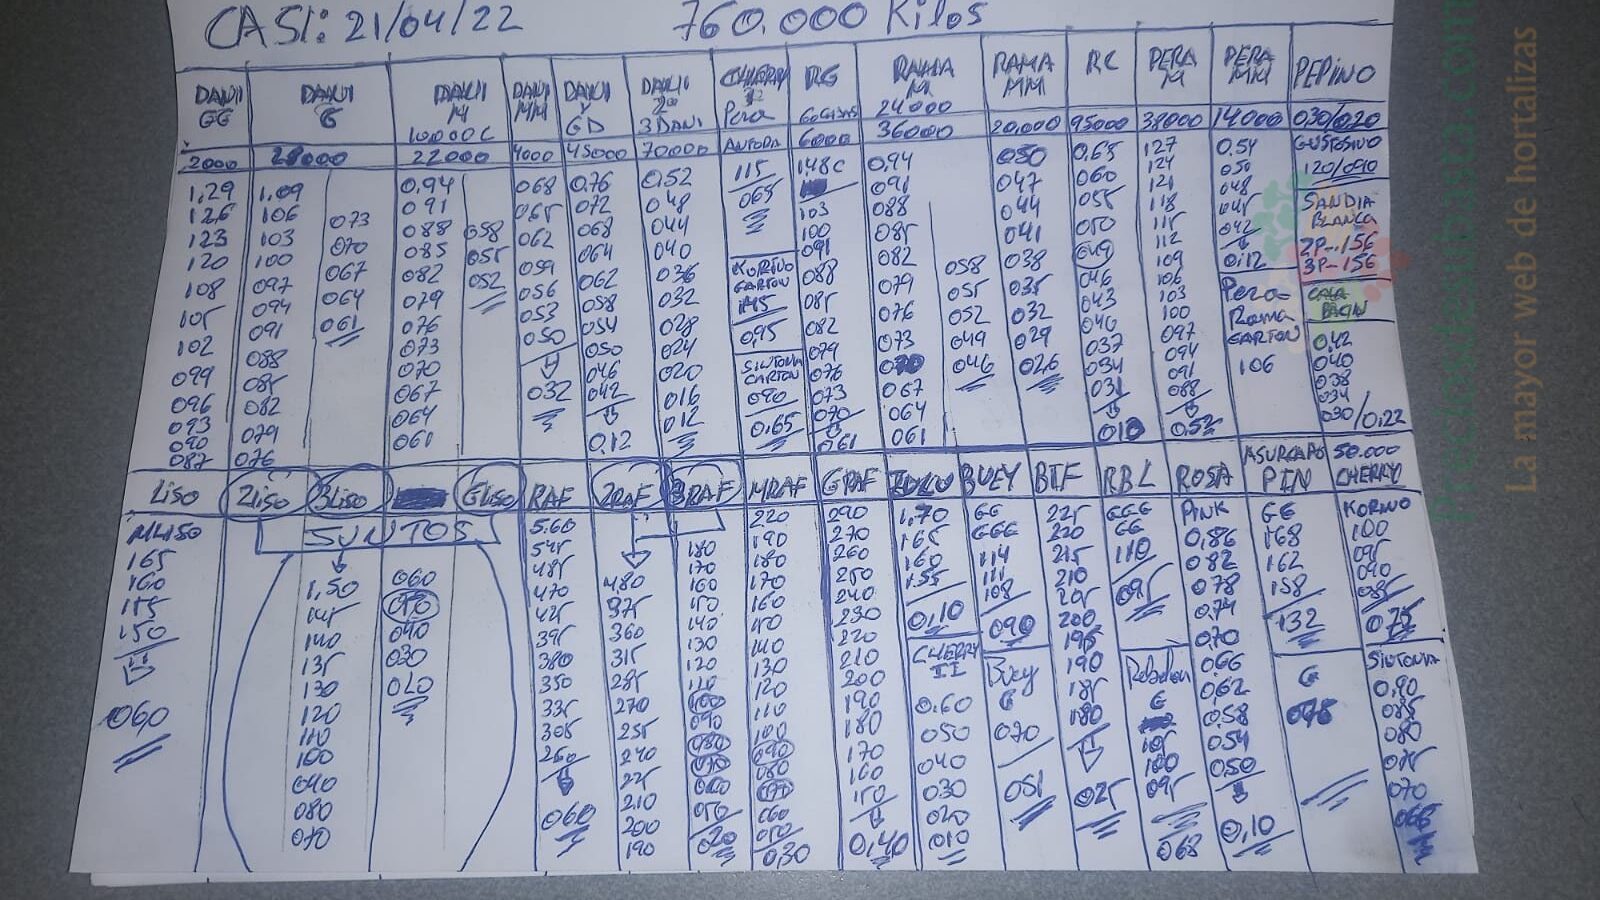 CASI: 21/04/22 760.000 Kilos
DANI GG
2000
1,29
126
123
120
108
105
102
099
096
093
090
087
DANI G
28000
1,09
106
103
100
097
094
091
088
085
082
079
076
073
070
067
064
061
DANI M
10000C
22000
0,94
091
088
085
082
079
076
073
070
067
064
061
058
055
052
DANI MM
4000
068
065
062
059
056
053
050
032
DANI Y GD
45000
0,76
072
068
064
062
058
054
050
046
042
0,12
DANI 2ª
3 DANI
70000
0,52
048
044
040
036
032
028
024
020
016
012
CHERRY
Pera
115
065
KORINO
CARTON
145
0,95
SINTONIA
CARTON
090
0,65
RG
6000
148C
103
100
091
088
085
082
079
076
073
070
061
RAMA M
24000
36000
0,94
091
088
085
082
079
076
073
070
067
064
061
058
055
052
049
046
RAMA MM
20.000
050
047
044
041
038
035
032
029
026
RC
95000
0,65
060
055
050
049
046
043
040
037
034
031
010
PERA M
38000
127
124
121
118
115
112
109
106
103
100
097
094
091
088
0,52
PERA MM
14000
0,54
050
048
045
042
0,12
Pera
Rama
CARTON
106
PEPINO
030/020
GUSTOSIVO
120/090
SANDIA
BLANCA
2P-.156
3P-.156
CALA
BACIN
0,42
040
038
034
030/0,22
LISO
MLISO
165
160
155
150
060
2LISO 3LISO GLISO
JUNTOS
1,50
145
140
135
130
120
110
100
090
080
070
060
050
040
030
020
RAF
5.60
545
485
470
425
395
380
350
335
305
260
060
2RAF
480
375
360
315
285
270
255
240
225
210
200
190
3RAF
180
170
160
150
140
130
120
110
100
090
080
070
060
050
020
MRAF
220
190
180
170
160
150
140
130
120
110
100
090
080
070
060
050
0,30
GRAF
290
270
260
250
240
230
220
210
200
190
180
170
160
150
0,40
1,70
165
160
155
0,10
CHERRY
II
0.60
050
040
030
020
010
BUEY
GG
GGG
114
111
108
090
Buey
G
070
051
BTF
225
220
215
210
205
200
195
190
185
180
025
RBL
GGG
GG
110
095
Rebelion
G
105
100
095
068
ROSA
PINK
0,86
082
078
0,74
0,70
0,66
0,62
0,58
0,54
0,50
0,10
ASURCADO
PIN
GG
168
162
158
132
G
098
50.000
CHERRY
KORINO
100
095
090
085
075
SINTONIA
0,90
085
080
075
070
066
Preciosdesubasta.com
La mayor web de hortalizas